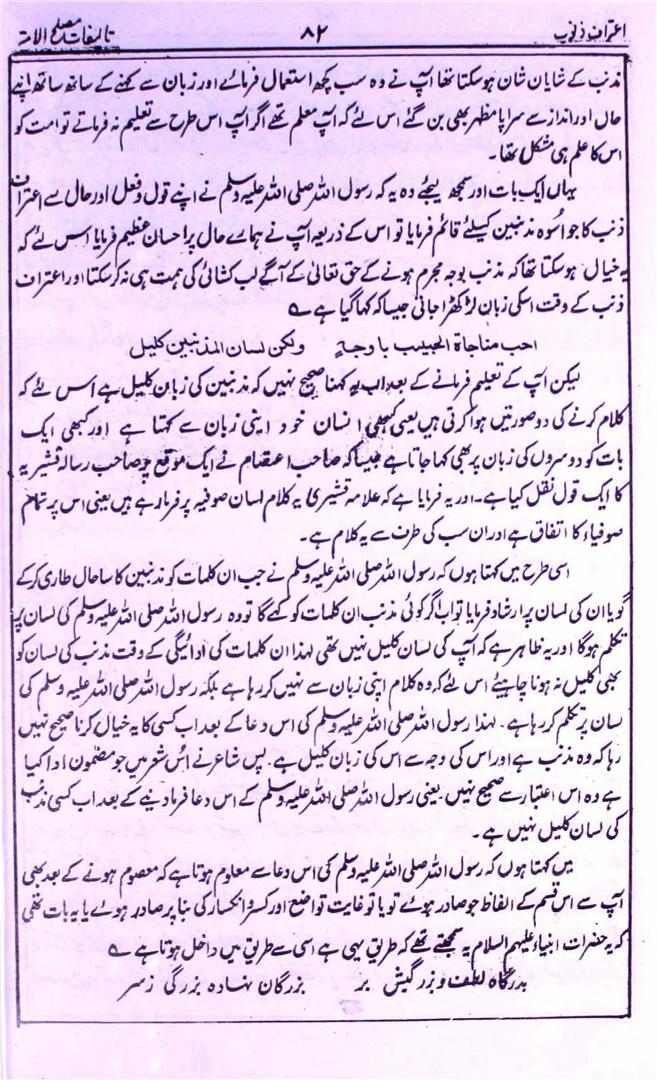 اعتراف ذنوب ۸۲ تالیفات مصلح الامۃ
مذنب کے شایان شان ہوسکتا تھا آپ نے وہ سب کچھ استعمال فرمائے اور زبان سے کہنے کے ساتھ ساتھ اپنے
حال اور انداز سے سراپا مظہر بھی بن گئے اس لئے کہ آپ معلم تھے اگر آپ اس طرح سے تعلیم نہ فرماتے تو امت کو
اس کا علم ہی مشکل تھا۔
یہاں ایک بات اور سمجھ لیجئے وہ یہ کہ رسول اللہ صلی اللہ علیہ وسلم نے اپنے قول و فعل اور حال سے اعتراف
ذنب کا جو اسوہ مذنبین کیلئے قائم فرمایا تو اس کے ذریعہ آپ نے ہمارے حال پر احسان عظیم فرمایا اس لئے کہ
یہ خیال ہوسکتا تھا کہ مذنب بوجہ مجرم ہونے کے حق تعالیٰ کے آگے لب کشائی کی ہمت ہی نہ کرسکتا اور اعتراف
ذنب کے وقت اسکی زبان لڑکھڑا جاتی جیسا کہ کہا گیا ہے ؎
احب مناجاة الحبیب باوجہ ولکن لسان المذنبین کلیل
لیکن آپ کے تعلیم فرمانے کے بعد اب یہ کہنا صحیح نہیں کہ مذنبین کی زبان کلیل ہے اس لئے کہ
کلام کرنے کی دو صورتیں ہوا کرتی ہیں یعنی کبھی انسان خود اپنی زبان سے کہتا ہے اور کبھی ایک
بات کو دوسروں کی زبان پر بھی کہا جاتا ہے جیسا کہ صاحب اعتصام نے ایک موقع پر صاحب رسالہ قشیریہ
کا ایک قول نقل کیا ہے۔ اور یہ فرمایا ہے کہ علامہ قشیری یہ کلام لسان صوفیہ پر فرما رہے ہیں یعنی اس پر تمام
صوفیاء کا اتفاق ہے اور ان سب کی طرف سے یہ کلام ہے۔
اسی طرح میں کہتا ہوں کہ رسول اللہ صلی اللہ علیہ وسلم نے جب ان کلمات کو مذنبین کا سا حال طاری کرکے
گویا ان کی لسان پر ارشاد فرمایا تو اب اگر کوئی مذنب ان کلمات کو کہے گا تو وہ رسول اللہ صلی اللہ علیہ وسلم کی لسان پر
تکلم ہوگا اور یہ ظاہر ہے کہ آپ کی لسان کلیل نہیں تھی لہذا ان کلمات کی ادائیگی کے وقت مذنب کی لسان کو
بھی کلیل نہ ہونا چاہیئے اس لئے کہ وہ کلام اپنی زبان سے نہیں کررہا ہے بلکہ رسول اللہ صلی اللہ علیہ وسلم کی
لسان پر تکلم کررہا ہے۔ لہذا رسول اللہ صلی اللہ علیہ وسلم کی اس دعا کے بعد اب کسی کا یہ خیال کرنا صحیح نہیں
رہا کہ وہ مذنب ہے اور اس کی وجہ سے اس کی زبان کلیل ہے۔ پس شاعر نے اس شعر میں جو مضمون ادا کیا
ہے وہ اس اعتبار سے صحیح نہیں۔ یعنی رسول اللہ صلی اللہ علیہ وسلم کے اس دعا فرما دینے کے بعد اب کسی مذنب
کی لسان کلیل نہیں ہے۔
میں کہتا ہوں کہ رسول اللہ صلی اللہ علیہ وسلم کی اس دعا سے معلوم ہوتا ہے کہ معصوم ہونے کے بعد بھی
آپ سے اس قسم کے الفاظ جو صادر ہوئے تو یا تو غایت تواضع اور کسر و انکسار کی بنا پر صادر ہوئے یا یہ بات تھی
کہ یہ حضرات انبیاء علیہم السلام یہ سمجھتے تھے کہ طریق یہی ہے اسی سے طریق میں داخل ہوتا ہے ؎
بدرگاہ لطف و بزرگیش بر بزرگان نہادہ بزرگی ز سر